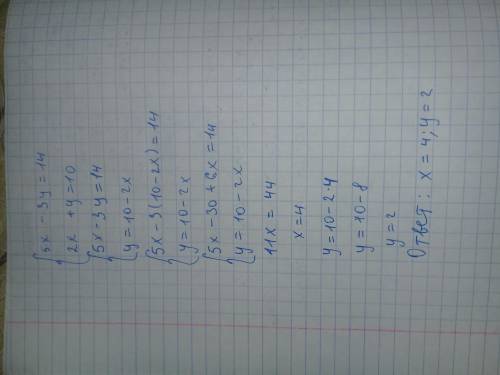 5x - 3y = 14
2x + y = 10
5x - 3y = 14
y = 10 - 2x
5x - 3(10 - 2x) = 14
y = 10 - 2x
5x - 30 + 6x = 14
y = 10 - 2x
11x = 44
x = 4
y = 10 - 2·4
y = 10 - 8
y = 2
Ответ: x = 4; y = 2